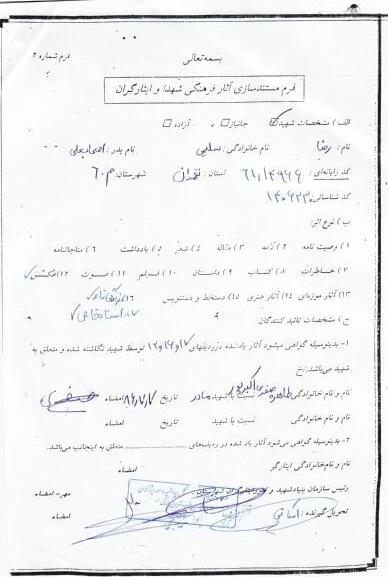 بسمه تعالی
فرم شماره ۲
فرم مستندسازی آثار فرهنگی شهدا و ایثارگران
الف ) مشخصات شهید جانباز آزاده
نام : رضا نام خانوادگی : سلیمی نام پدر :
کد رایانه‌ای : استان : تهران شهرستان : م ۶۰
کد شناسائی
ب ) نوع اثر:
۱ ) وصیت نامه ۲ ) نامه ۳ ) مقاله ۴ ) شعر ۵ ) یادداشت ۶ ) مناجاتنامه
۷ ) خاطرات ۸ ) کتاب ۹ ) داستان ۱۰ ) فیلم ۱۱ ) صوت ۱۲ ) عکس
۱۳ ) آثار موزه‌ای ۱۴ ) آثار هنری ۱۵ ) دستخط و دستنویس ۱۶ ) زندگی نامه
۱۷
ج ) مشخصات تائید کنندگان
۱- بدینوسیله گواهی میشود آثار یادشده در ردیفهای ۱۲ و ۱۶ و ۱۷ توسط شهید نگاشته شده و متعلق به
شهید می‌باشد.
نام و نام خانوادگی طاهره صفری اکبرپور شهید مادر تاریخ ۸۶/۷/۷ امضاء
نام و نام خانوادگی نسبت با شهید تاریخ امضاء
۲- بدینوسیله گواهی می‌شود آثار یاد شده در ردیف‌های .................... متعلق به اینجانب می‌باشد.
نام و نام‌خانوادگی ایثارگر امضاء
رئیس سازمان بنیاد شهید و امور ایثارگران شهرستان مهر - امضاء
تحویل گیرنده : امضاء